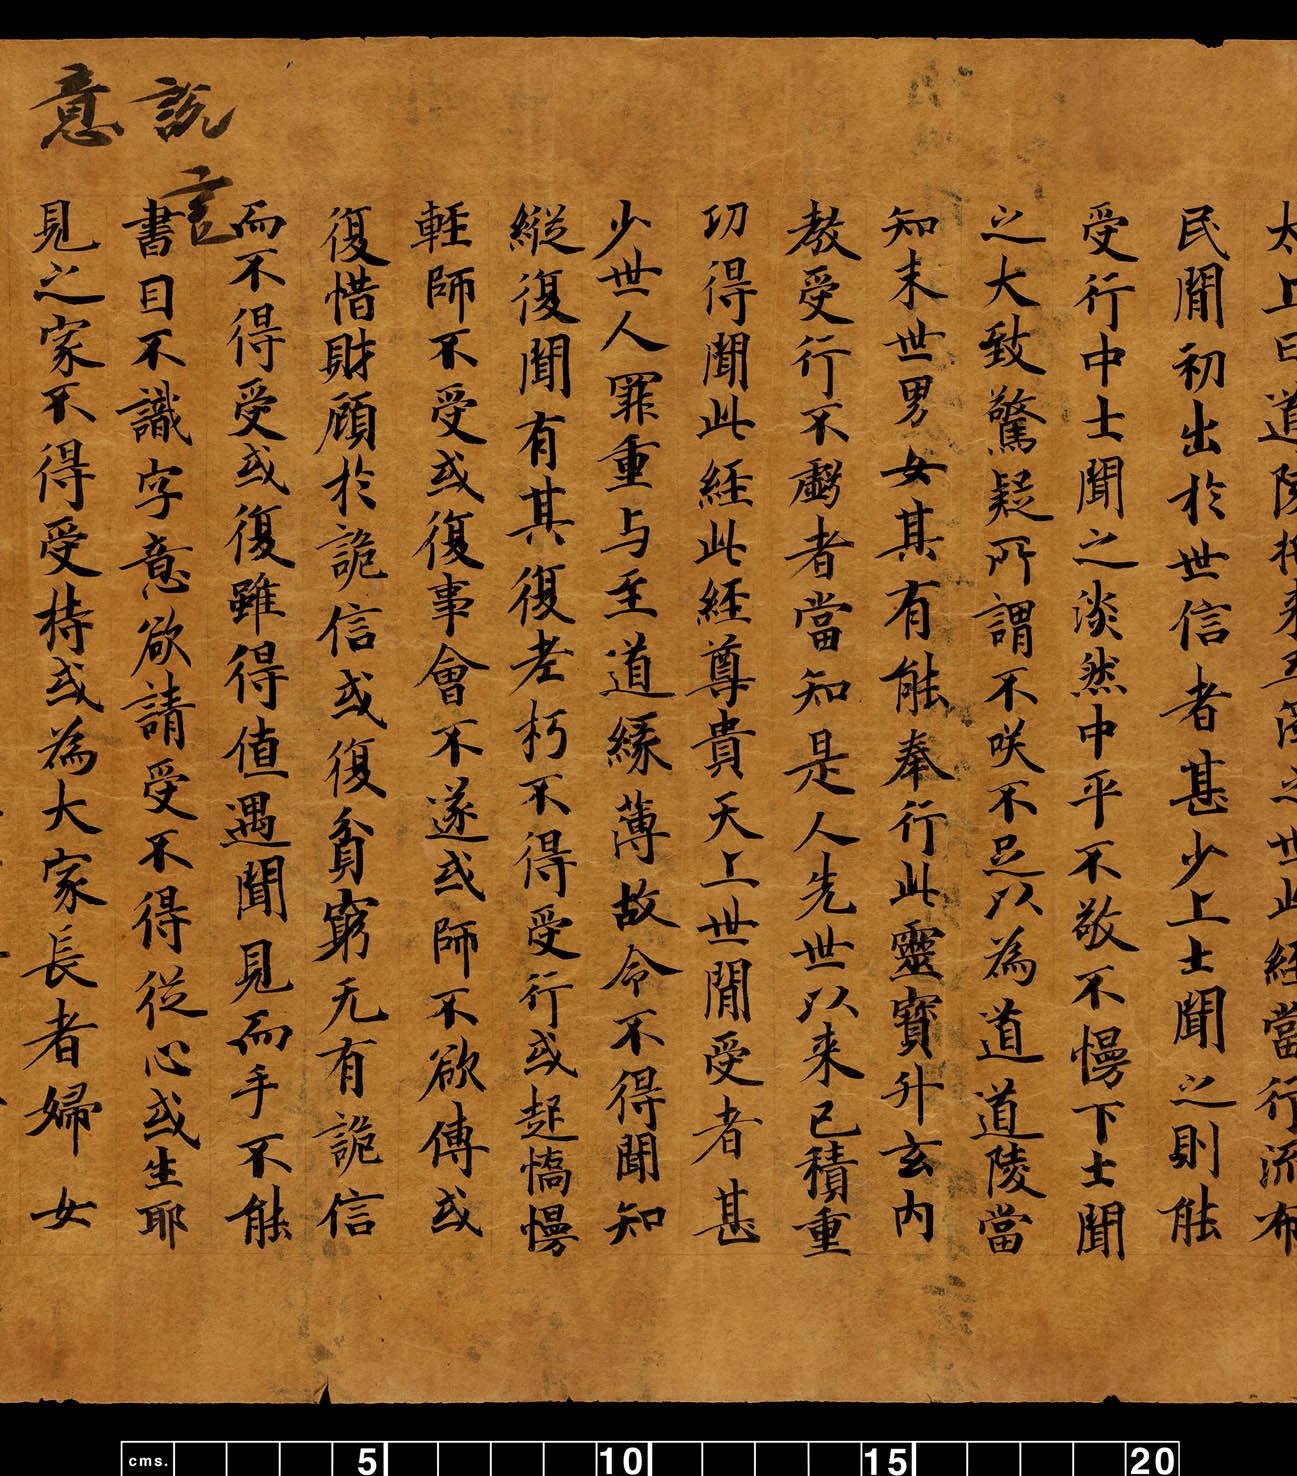 太上曰道陵抄来五濁之世此經當行流布
民閒初出於世信者甚少上士聞之則能
受行中士聞之淡然中平不敬不慢下士聞
之大致驚疑所謂不咲不足以為道道陵當
知末世男女其有能奉行此靈寶升玄内
教受行不虧者當知是人先世以来已積重
功得聞此經此經尊貴天上世閒受者甚
少世人罪重与至道緣薄故令不得聞知
縱復聞有其復老朽不得受行或起憍慢
輕師不受或復事會不遂或師不欲傳或
復惜財顧於詭信或復貧窮无有詭信
而不得受或復雖得值遇聞見而手不能
書目不識字意欲請受不得從心或生耶
見之家不得受持或為大家長者婦女
說
言
意
cms. 5 10 15 20